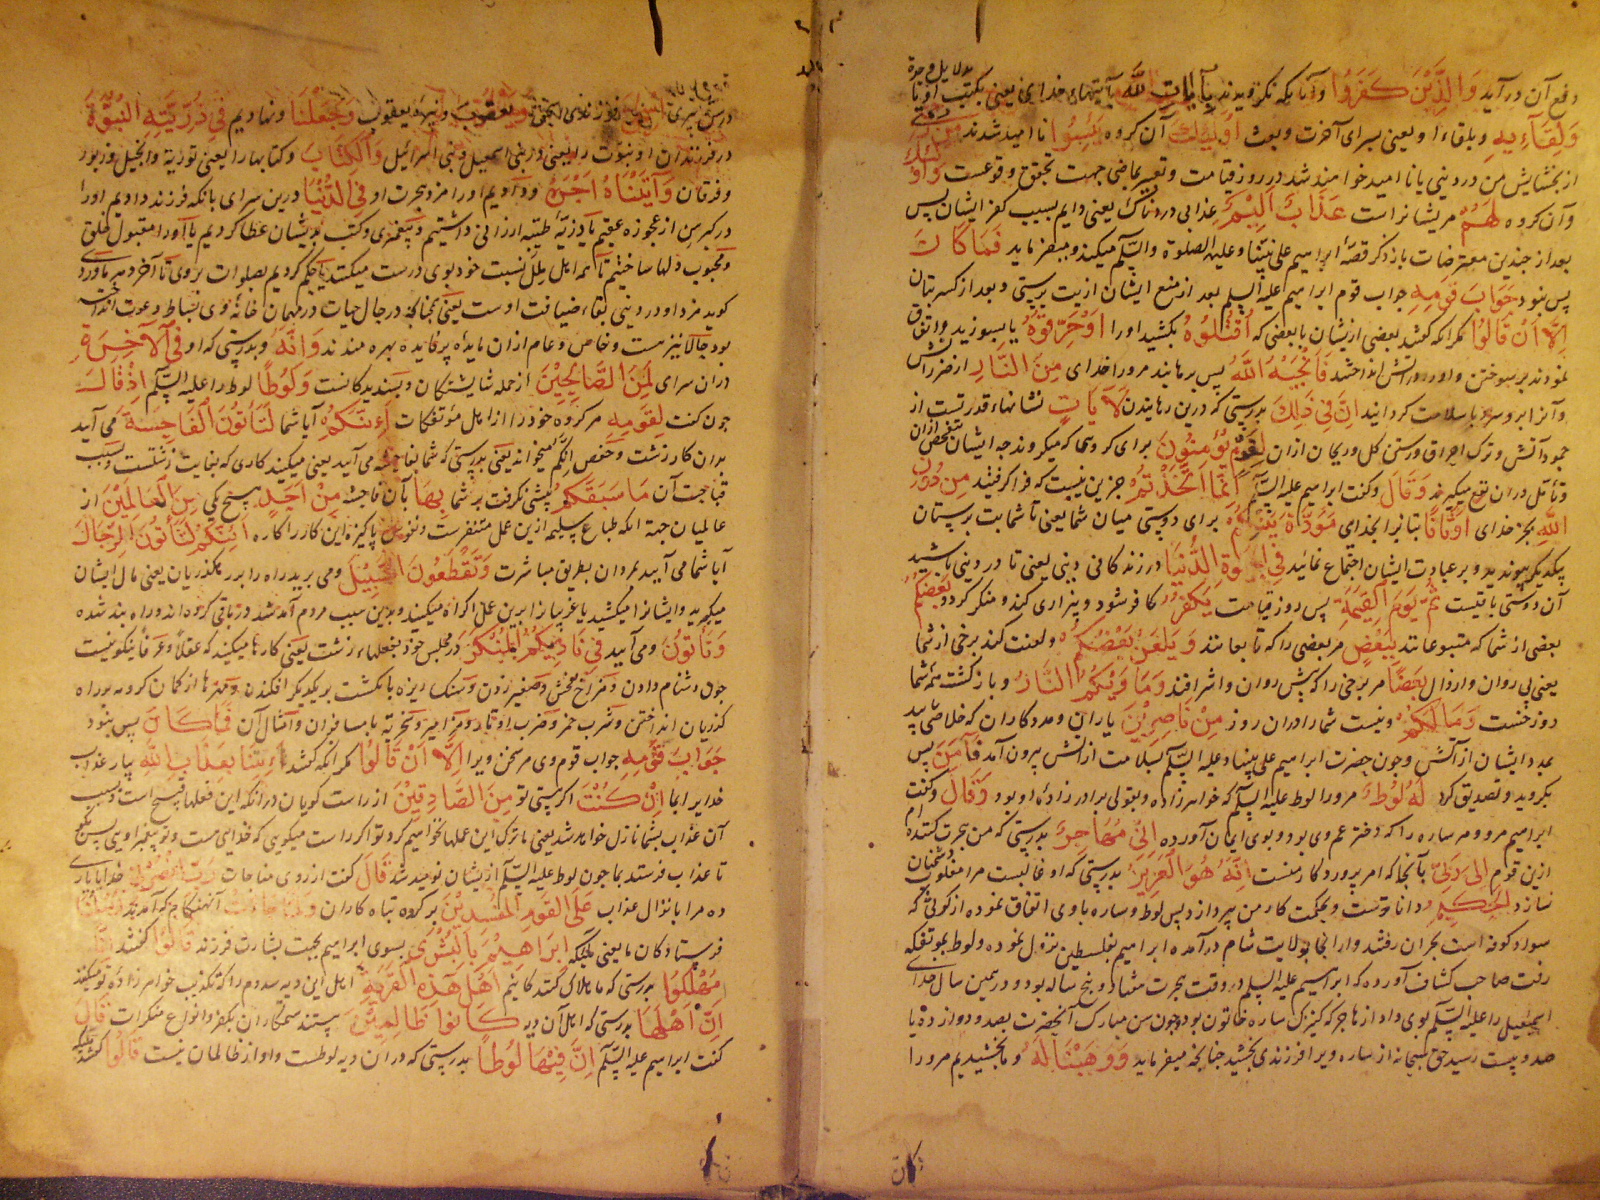 دفع آن در آید وَالَّذِیْنَ کَفَرُوا وآنانکه نگرویدند بِآیَاتِ اللّٰهِ بآیتهای خدای یعنی بکتب او یا
وَلِقَآءِهٖ وبلقاء او یعنی بسرای آخرت وبعث اُولٰٓئِكَ آن گروه یَئِسُوا نا امید شدند مِنْ
از بخشایش من در دنیی یا نا امید خواهند شد در روز قیامت وتعبیر بماضی جهت تحقق وقوعست وَاُو
وآن گروه لَهُمْ مریشانراست عَذَابٌ اَلِیْمٌ عذابی دردناك یعنی دایم بسبب کفر ایشان پس
بعد از چندین معترضات باز ذکر قصۀ ابراهیم علی نبینا وعلیه الصلوة والسّلام میکند ومیفرماید فَمَا کَانَ
پس نبود جَوَابَ قَوْمِهٖ جواب قوم ابراهیم علیه السلام بعد از منع ایشان از بت پرستی وبعد از کسر بتان
اِلَّا اَنْ قَالُوْا مگر آنکه گفتند بعضی ازیشان با بعضی که اُقْتُلُوْهُ بکشید اورا اَوْ حَرِّقُوْهُ یا بسوزید واتفاق
نمودند بر سوختن واورا در آتش انداختند فَاَنْجٰیهُ اللّٰهُ پس برهانید مرورا خدای مِنَ النَّارِ از ضرر آتش
وآنرا برو سرد با سلامت گردانید اِنَّ فِیْ ذٰلِكَ بدرستی که درین رهانیدن لَاٰیَاتٍ نشانها وقدرتست از
جمود آتش وترك احراق ورستن گل وریحان ازان لِقَوْمٍ یُؤْمِنُوْنَ برای گروهی که میگروند چه ایشان
وتأمل دران نفع میگیرند وَقَالَ وگفت ابراهیم علیه السّلام اِنَّمَا اتَّخَذْتُمْ جزین نیست که فرا گرفتید مِنْ دُوْنِ
اللّٰهِ بجز خدای اَوْثَانًا بتانرا بخدای مَوَدَّةَ بَیْنِکُمْ برای دوستی میان شما یعنی تا شما بت پرستان
بیکدیگر پیوندید وبر عبادت ایشان اجتماع نمائید فِی الْحَیٰوةِ الدُّنْیَا در زندگانی دنیی یعنی تا در دنیی باشید
آن دوستی باقیست ثُمَّ یَوْمَ الْقِیٰمَةِ پس روز قیامت یَکْفُرُ کافر شود وبیزاری کند ومنکر گردد بَعْضُکُمْ
بعضی از شما که متبوعانند بِبَعْضٍ مر بعضی را که تابعانند وَیَلْعَنُ بَعْضُکُمْ ولعنت کند برخی از شما
یعنی پی روان واراذل بَعْضًا مر برخی را که پیش روان واشرافند وَمَاْوٰیکُمُ النَّارُ وبازگشت همه شما
دوزخست وَمَا لَکُمْ ونیست شمارا دران روز مِنْ نَاصِرِیْنَ یاران ومددگاران که خلاصی یابید
بمدد ایشان از آتش وچون حضرت ابراهیم علی نبینا وعلیه السّلام بسلامت از آتش بیرون آمد فَاٰمَنَ پس
بگروید وتصدیق کرد لَهُ لُوْطٌ مرورا لوط علیه السّلام که خواهرزاده وبقولی برادرزادۀ او بود وَقَالَ وگفت
ابراهیم مرو ومر ساره را که دختر عم وی بود وبوی ایمان آورده اِنِّیْ مُهَاجِرٌ بدرستی که من هجرت کننده ام
ازین قوم اِلٰی رَبِّیْ بآنجا که امر پروردگار منست اِنَّهٗ هُوَ الْعَزِیْزُ بدرستی که او غالبست مرا مغلوب دشمنان
نسازد الْحَکِیْمُ ودانا وتست وبحکمت کار من پردازد پس لوط وساره با وی اتفاق نموده از کوثی که
سواد کوفه است بحران رفتند وازانجا بولایت شام درآمده ابراهیم بفلسطین نزول نموده ولوط بموتفکه
رفت صاحب کشاف آورده که ابراهیم علیه السلام در وقت هجرت هفتاد وپنج ساله بود ودر همین سال خدای
اسمعیل را علیه السّلام بوی داد از هاجر که کنیزك ساره خاتون بود وچون سن مبارك آنحضرت بصد ودوازده یا
صد وبیست رسید حق سبحانه از ساره ویرا فرزندی بخشید چنانچه میفرماید وَوَهَبْنَا لَهٗ وما بخشیدیم مرورا
در سن پیری اِسْحٰقَ وَیَعْقُوْبَ ونبیره یعقوب وَجَعَلْنَا ونهادیم فِیْ ذُرِّیَّتِهِ النُّبُوَّةَ
در فرزندان او نبوت را یعنی در بنی اسمعیل وبنی اسرائیل وَالْکِتَابَ وکتابها را یعنی توریة وانجیل وزبور
وفرقان وَاٰتَیْنَاهُ اَجْرَهٗ ودادیم اورا مزد هجرت او فِی الدُّنْیَا درین سرای بانکه فرزند دادیم اورا
در کبر سن از عجوزه عقیم یا ذریۀ طیبه ارزانی داشتیم وپیغمبری وکتب بریشان عطا کردیم یا اورا مقبول خلق
ومحبوب دلها ساختیم تا همه اهل ملل نسبت خود بوی درست میکنند یا حکم کردیم بصلوات بروی تا آخر دهر
گوید مزد او در دنیی بقاء ضیافت اوست یعنی همچنانکه در حال حیات در مهمان خانۀ وی بساط دعوت
بود حالا نیز هست وخاص وعام ازان مایدۀ پر فایده بهره مندند وَاِنَّهٗ وبدرستی که او فِی الْاٰخِرَةِ
دران سرای لَمِنَ الصَّالِحِیْنَ از جمله شایستگان وپسندیدگانست وَلُوْطًا لوط را علیه السّلام اِذْ قَالَ
چون گفت لِقَوْمِهٖ مر گروه خود را از اهل موتفکات اَءِنَّکُمْ آیا شما لَتَأْتُوْنَ الْفَاحِشَةَ می آیید
بدان کار زشت وحفص اِنَّکُمْ میخواند یعنی بدرستی که شما بفاحشه می آیید یعنی میکنید کاری که بغایت زشتست وبسبب
قباحت آن مَا سَبَقَکُمْ پیشی نگرفت بر شما بِهَا بآن فاحشه مِنْ اَحَدٍ هیچ یکی مِنَ الْعَالَمِیْنَ از
عالمیان جهة آنکه طباع سلیمه ازین عمل متنفرست ونفوس پاکیزه این کار را کاره اَئِنَّکُمْ لَتَأْتُوْنَ الرِّجَالَ
آیا شما می آیید بمردان بطریق مباشرت وَتَقْطَعُوْنَ السَّبِیْلَ ومی برید راه را بر رهگذریان یعنی مال ایشان
میگیرید وایشانرا میکشید یا غربا را برین عمل اکراه میکنید وبدین سبب مردم آمدشد در باقی کرده اند وراه بند شده
وَتَأْتُوْنَ ومی آیید فِیْ نَادِیْکُمُ الْمُنْکَرَ در مجلس خود بفعلهاء زشت یعنی کارها میکنید که عقلاً وعرفاً نیکو نیست
چون دشنام دادن ومزاح فحش وصفیر زدن وسنك ریزه بانگشت بر یکدیگر افکندن ومهرها از کمان گروهه بر راه
گذریان انداختن وشرب خمر وضرب اوتار ومزامیر وسخریه با مسافران وامثال آن فَمَا کَانَ پس نبود
جَوَابَ قَوْمِهٖ جواب قوم وی مر سخن ویرا اِلَّا اَنْ قَالُوْا مگر آنکه گفتند اءْتِنَا بِعَذَابِ اللّٰهِ بیار عذاب
خدایرا بما اِنْ کُنْتَ اگر هستی تو مِنَ الصَّادِقِیْنَ از راست گویان درانکه این فعلها قبیح است وبسبب
آن عذاب بشما نازل خواهد شد یعنی ما ترك این عملها نخواهیم کرد تو اگر راست میگویی که خدای هست وتو پیغمبر اویی پس بگوی
تا عذاب فرستد بما چون لوط علیه السّلام ازیشان نومید شد قَالَ گفت از روی مناجات رَبِّ انْصُرْنِیْ خدایا یاری
ده مرا بانزال عذاب عَلَی الْقَوْمِ الْمُفْسِدِیْنَ بر گروه تباه کاران وَلَمَّا جَاءَتْ وآنهنگام که آمدند رُسُلُنَا
فرستادگان ما یعنی ملائکه اِبْرَاهِیْمَ بِالْبُشْرٰی بسوی ابراهیم بجهت بشارت فرزند قَالُوْا گفتند اِنَّا
مُهْلِکُوْا بدرستی که ما هلاك کنندگانیم اَهْلِ هٰذِهِ الْقَرْیَةِ اهل این دیه سدوم را که تکذیب خواهرزاده تو میکنند
اِنَّ اَهْلَهَا بدرستی که اهل آن دیه کَانُوْا ظَالِمِیْنَ هستند ستمکاران بکفر وانواع منکرات قَالَ
گفت ابراهیم علیه السّلام اِنَّ فِیْهَا لُوْطًا بدرستی که دران دیه لوطست واو از ظالمان نیست قَالُوْا گفتند